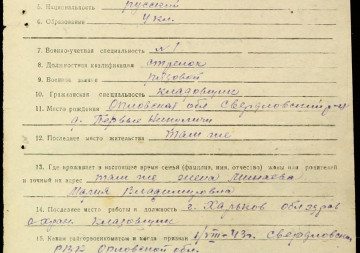 5. Национальность русский
6. Образование 4 кл.
7. Военно-учетная специальность №1
8. Должностная квалификация стрелок
9. Военное звание рядовой
10. Гражданская специальность кладовщик
11. Место рождения Орловская обл. Свердловский р-н
д. Первые
12. Последнее место жительства там же
13. Где проживает в настоящее время семья (фамилия, имя, отчество) жены или родителей
и точный их адрес там же жена
Мария Владимировна
14. Последнее место работы и должность г. Харьков облздрав
кладовщик
15. Каким райгорвоенкоматом и когда призван VIII-43г. Свердловским
РВК Орловской обл.